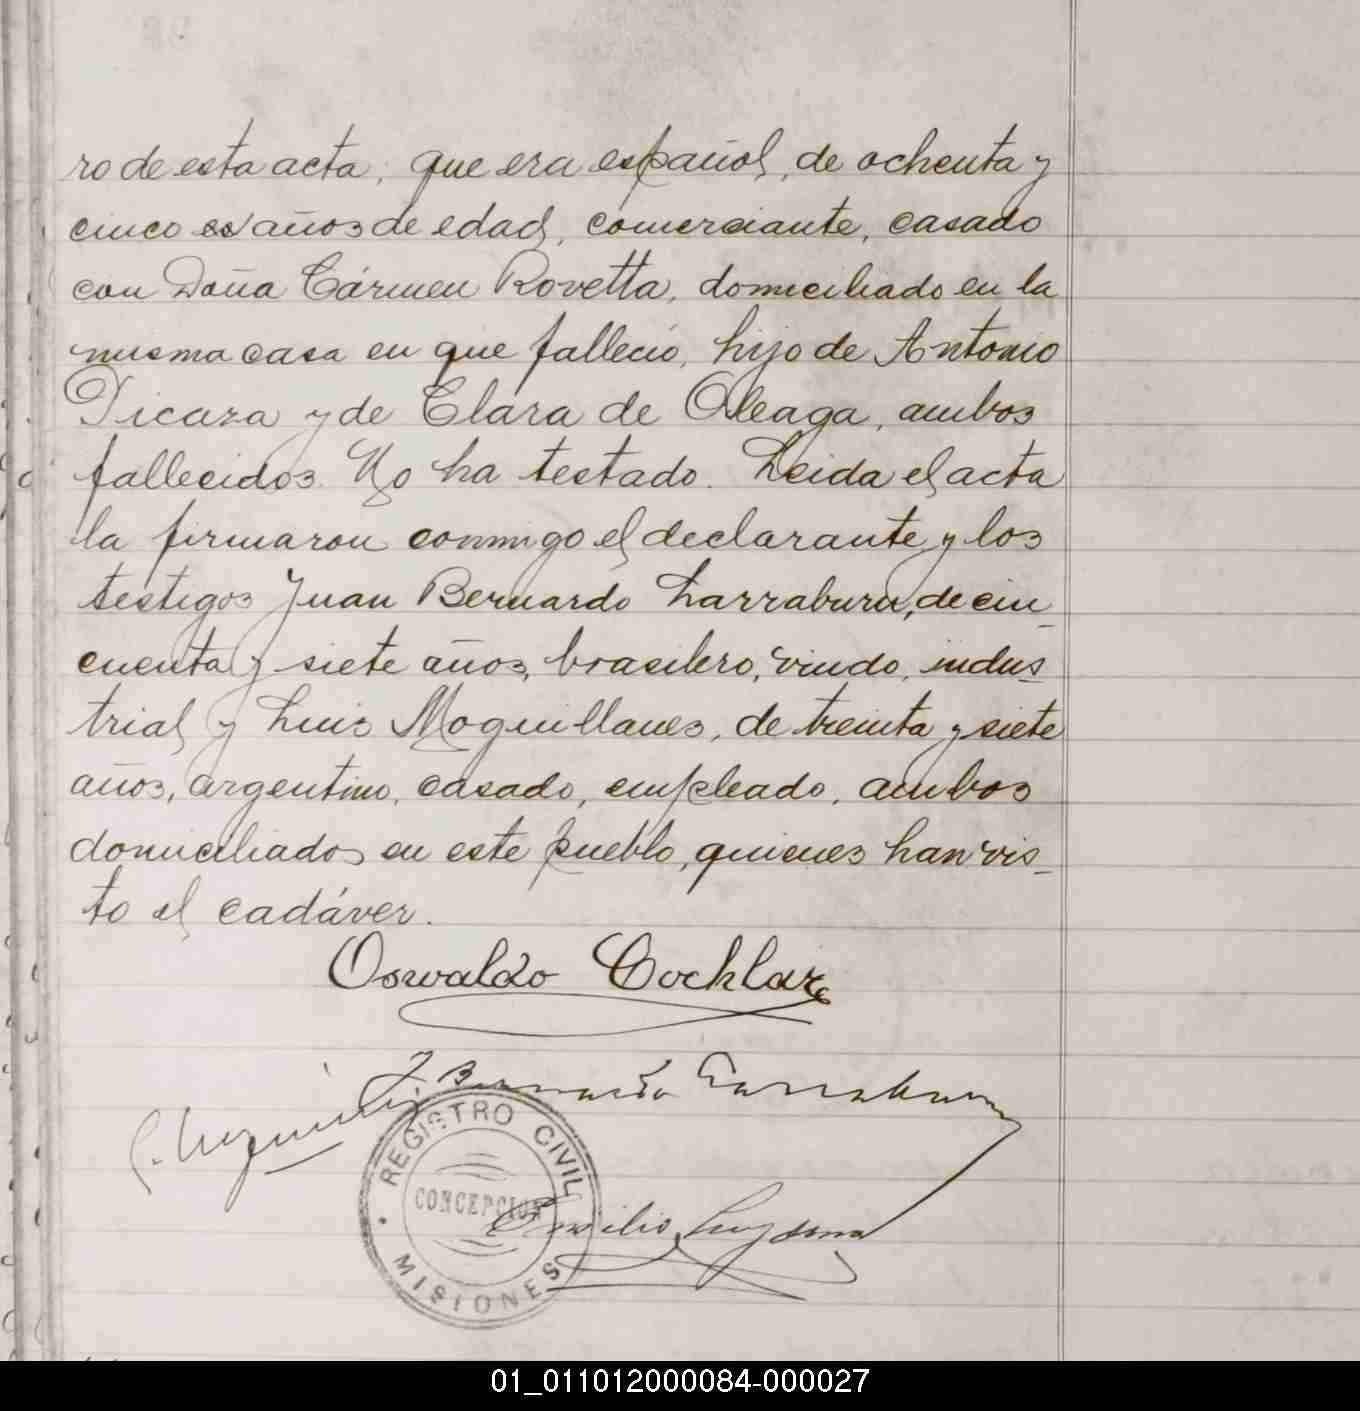 ro de esta acta; que era español, de ochenta y
cinco años de edad, comerciante, casado
con Doña Cármen Rovetta, domiciliado en la
misma casa en que falleció, hijo de Antonio
Picaza y de Clara de Oleaga, ambos
fallecidos. No ha testado. Leida el acta
la firmaron conmigo el declarante y los
testigos Juan Bernardo Larraburu, de cin_
cuenta y siete años, brasilero, viudo, indus_
trial y Luis Moquillanes, de treinta y siete
años, argentino, casado, empleado, ambos
domiciliados en este pueblo, quienes han vis_
to el cadáver.
Osvaldo Cochlar
J. Bernardo Larraburu
REGISTRO CIVIL
CONCEPCION
Emilio
MISIONES
01_011012000084-000027